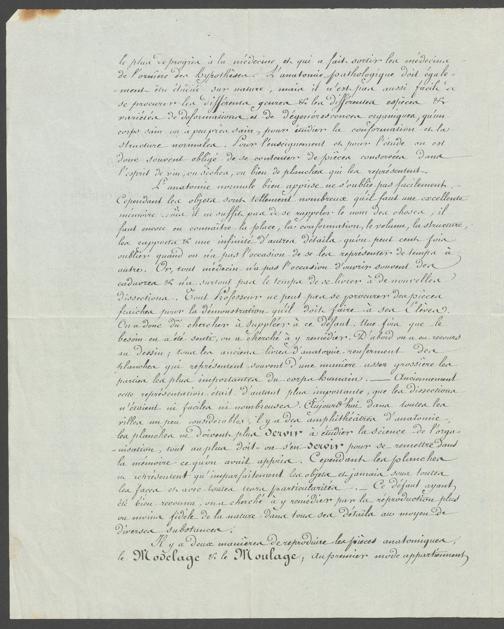 le plus de progrès à la médecine et qui a fait sortir les médecins
de l'ornière des hypothèses. L'anatomie pathologique doit égale-
ment être étudiée sur nature, mais il n'est pas aussi facile de
se procurer les différents genres & les différentes espèces &
variétés de déformations et de dégénérescences organiques, qu'un
corps sain ou à peu près sain, pour étudier la conformation et la
structure normales. Pour l'enseignement et pour l'étude on est
donc souvent obligé de se contenter de pièces conservées dans
l'esprit de vin, ou sèches, ou bien de planches qui les représentent.
L'anatomie normale bien apprise ne s'oublie pas facilement.
Cependant les objets sont tellement nombreux qu'il faut une excellente
mémoire, car il ne suffit pas de se rappeler le nom des choses, il
faut encore en connaître la place, la conformation, le volume, la structure,
les rapports & une infinité d'autres détails qu'on peut cent fois
oublier quand on n'a pas l'occasion de se les représenter de temps à
autre. Or, tout médecin n'a pas l'occasion d'ouvrir souvent des
cadavres & n'a surtout pas le temps de se livrer à de nouvelles
dissections. Tout Professeur ne peut pas se procurer des pièces
fraîches pour la démonstration qu'il doit faire à ses Elèves.
On a donc dû chercher à suppléer à ce défaut. Une fois que le
besoin en a été senti, on a cherché à y remédier. D'abord on a eu recours
au dessin; tous les anciens livres d'anatomie renferment des
planches qui représentent souvent d'une manière assez grossière les
parties les plus importantes du corps humain. — Anciennement
cette représentation était d'autant plus importante, que les dissections
n'étaient ni faciles ni nombreuses. Aujourd'hui dans toutes les
villes un peu considérables, il y a des amphithéâtres d'anatomie,
les planches ne doivent plus servir à étudier la science de l'orga-
nisation, tout au plus doit-on s'en servir pour se remettre dans
la mémoire ce qu'on avait appris. Cependant les planches
ne représentent qu'imparfaitement les objets et jamais sous toutes
les faces et avec toutes leurs particularités. — Ce défaut ayant
été bien reconnu, on a cherché à y remédier par la reproduction plus
ou moins fidèle de la nature dans tous ses détails au moyen de
diverses substances.
Il y a deux manières de reproduire les pièces anatomiques,
le Modelage & le Moulage, au premier mode appartiennent